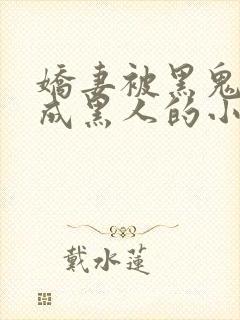 嬌妻被黑鬼
成黑人的小
戴水蓮